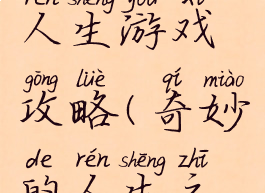 rén shēng yóu xì
人生游戏
gōng lüè qí miào
攻略(奇妙
de rén shēng zhī
的人生之